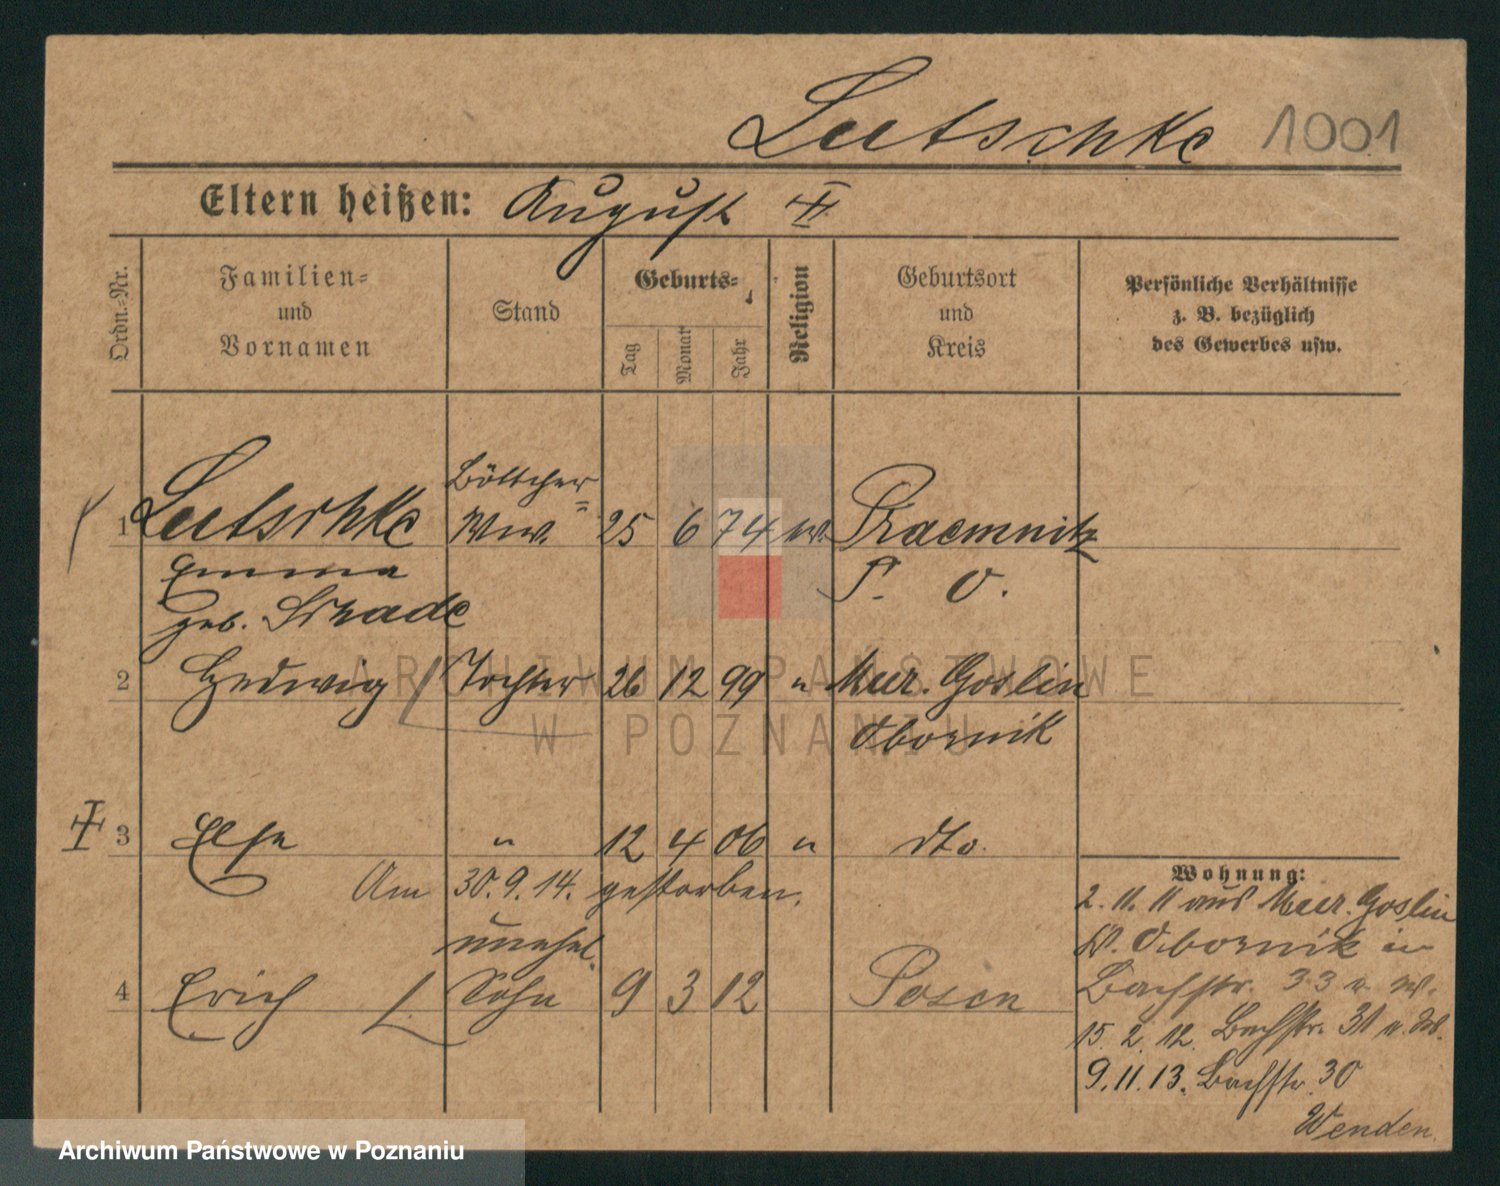 Lutschke 1001
Eltern heißen: August
Ordn.-Nr.
Familien-
und
Vornamen
Stand
Geburts-
Tag
Monat
Jahr
Religion
Geburtsort
und
Kreis
Persönliche Verhältnisse
z. B. bezüglich
des Gewerbes usw.
Böttcher-
1 Lutschke Ww. 25 6 74
Emma P. O.
geb.
2 Hedwig Tochter 26 12 99 " Mur. Goslin
Obornik
3 Else " 12 4 06 " dto.
Am 30.9.14. gestorben.
unehel.
4 Erich Sohn 9 3 12 Posen
Wohnung:
2. 11. 11 aus Mur. Goslin
Kr. Obornik in
Bachstr. 33
15. 2. 12. Bachstr. 31
9. 11. 13. Bachstr. 30
Wenden.
ARCHIWUM PAŃSTWOWE
W POZNANIU
Archiwum Państwowe w Poznaniu